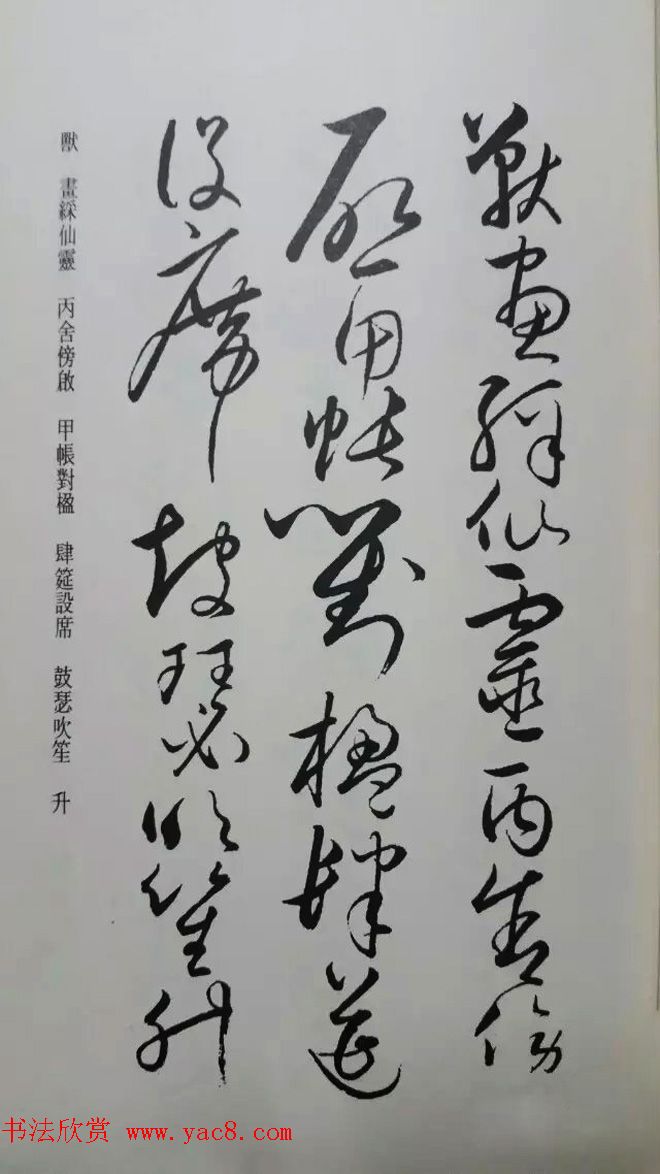 獸畫綵仙靈丙舍傍
啟甲帳對楹肆筵
設席鼓瑟吹笙升
獸 畫綵仙靈 丙舍傍啟 甲帳對楹 肆筵設席 鼓瑟吹笙 升
书法欣赏 www.yac8.com